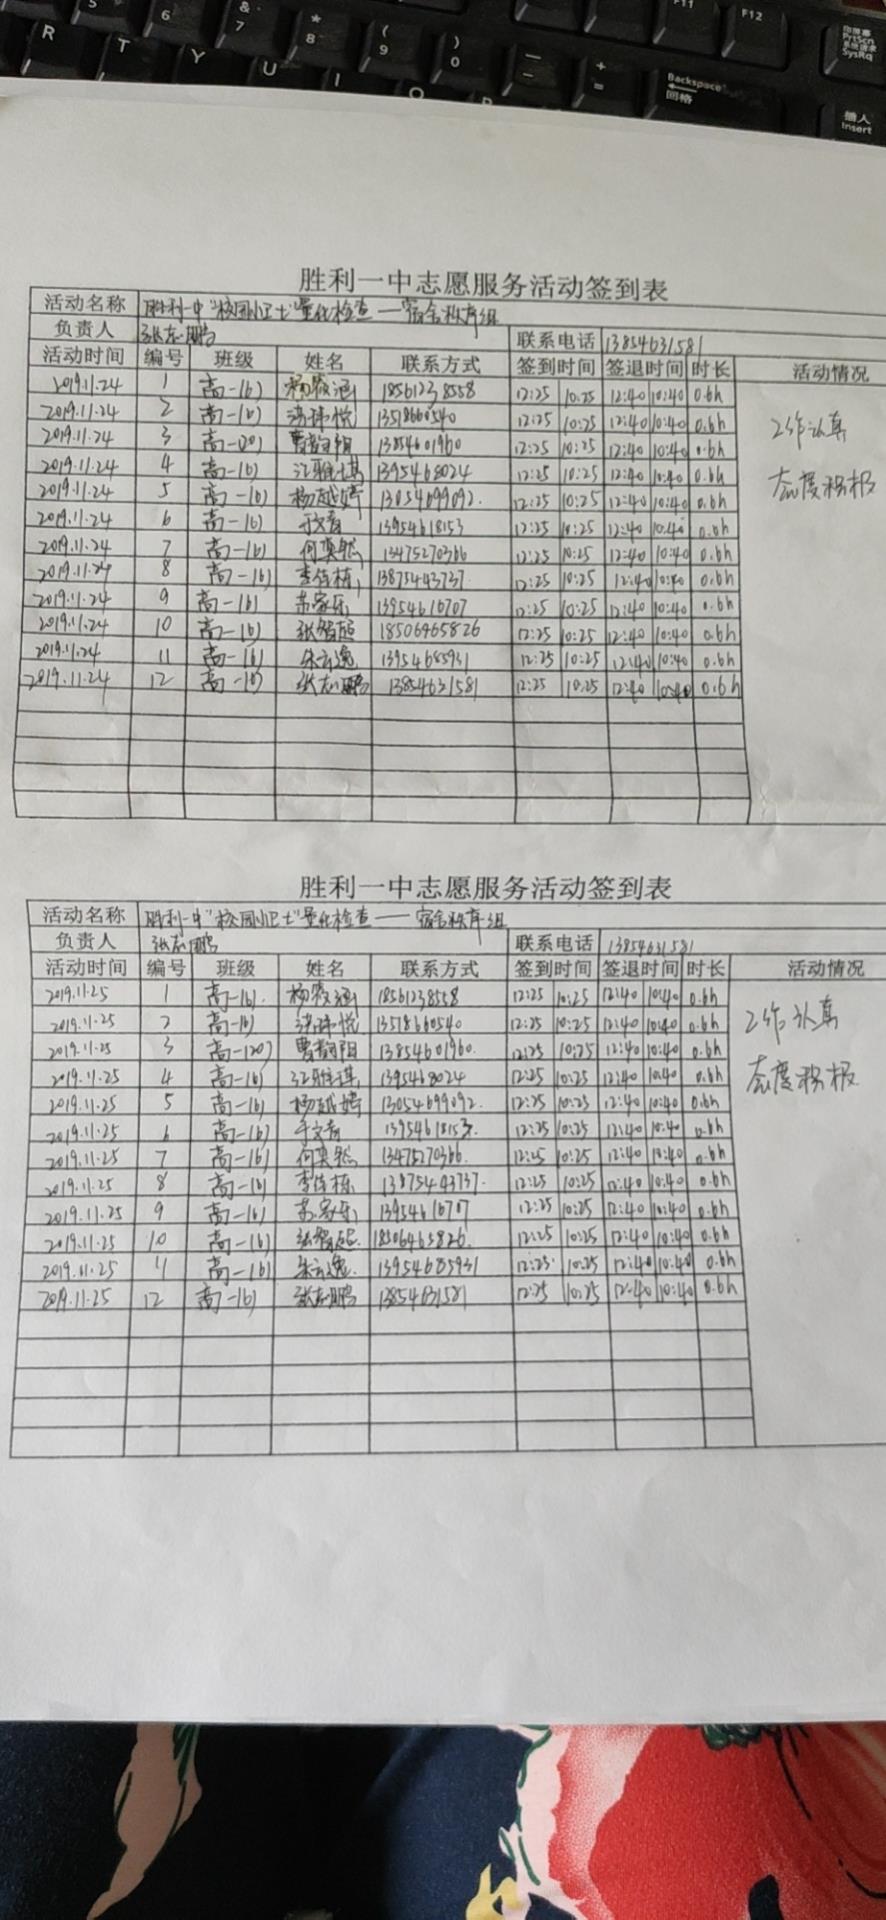 R T Y U I O P
5 6 & 7 * 8 ( 9 ) 0 — - + = Backspace 回格
F11 F12 PrtScn SysRq
插入 Insert
胜利一中志愿服务活动签到表
活动名称 胜利一中"校园小卫士"量化检查——宿舍秩序组
负责人 张志鹏 联系电话 13854631581
活动时间 编号 班级 姓名 联系方式 签到时间 签退时间 时长 活动情况
2019.11.24 1 高一(6) 杨筱涵 18561238558 12:25 10:25 12:40 10:40 0.6h
2019.11.24 2 高一(6) 12:25 10:25 12:40 10:40 0.6h 工作认真
2019.11.24 3 高一(20) 曹 13854601960 12:25 10:25 12:40 10:40 0.6h
2019.11.24 4 高一(6) 江雅琪 1395468024 12:25 10:25 12:40 10:40 0.6h 态度积极
2019.11.24 5 高一(6) 杨越婷 13054699092. 12:25 10:25 12:40 10:40 0.6h
2019.11.24 6 高一(6) 于文青 13954618153 12:25 10:25 12:40 10:40 0.6h
2019.11.24 7 高一(6) 何奕然 13475270366 12:25 10:25 12:40 10:40 0.6h
2019.11.24 8 高一(6) 李佳栋 13875443737. 12:25 10:25 12:40 10:40 0.6h
2019.11.24 9 高一(6) 苏家乐 1395461 0707 12:25 10:25 12:40 10:40 0.6h
2019.11.24 10 高一(6) 张 18506465826 12:25 10:25 12:40 10:40 0.6h
2019.11.24 11 高一(6) 朱云逸 13954685931 12:25 10:25 12:40 10:40 0.6h
2019.11.24 12 高一(6) 张志鹏 13854631581 12:25 10:25 12:40 10:40 0.6h
胜利一中志愿服务活动签到表
活动名称 胜利一中"校园小卫士"量化检查——宿舍秩序组
负责人 张志鹏 联系电话 13854631581
活动时间 编号 班级 姓名 联系方式 签到时间 签退时间 时长 活动情况
2019.11.25 1 高一(6) 杨筱涵 18561238558 12:25 10:25 12:40 10:40 0.6h
2019.11.25 2 高一(6) 13518660540 12:25 10:25 12:40 10:40 0.6h 工作认真
2019.11.25 3 高一(20) 曹 13854601960. 12:25 10:25 12:40 10:40 0.6h
2019.11.25 4 高一(6) 江雅琪 1395468024 12:25 10:25 12:40 10:40 0.6h 态度积极
2019.11.25 5 高一(6) 杨越婷 13054699092. 12:25 10:25 12:40 10:40 0.6h
2019.11.25 6 高一(6) 于文青 12:25 10:25 12:40 10:40 0.6h
2019.11.25 7 高一(6) 何奕然 13475270366. 12:25 10:25 12:40 10:40 0.6h
2019.11.25 8 高一(6) 李佳栋 13875443737. 12:25 10:25 12:40 10:40 0.6h
2019.11.25 9 高一(6) 苏家乐 12:25 10:25 12:40 10:40 0.6h
2019.11.25 10 高一(6) 张 18506465826. 12:25 10:25 12:40 10:40 0.6h
2019.11.25 11 高一(6) 朱云逸 13954685931 12:25 10:25 12:40 10:40 0.6h
2019.11.25 12 高一(6) 张志鹏 13854631581 12:25 10:25 12:40 10:40 0.6h